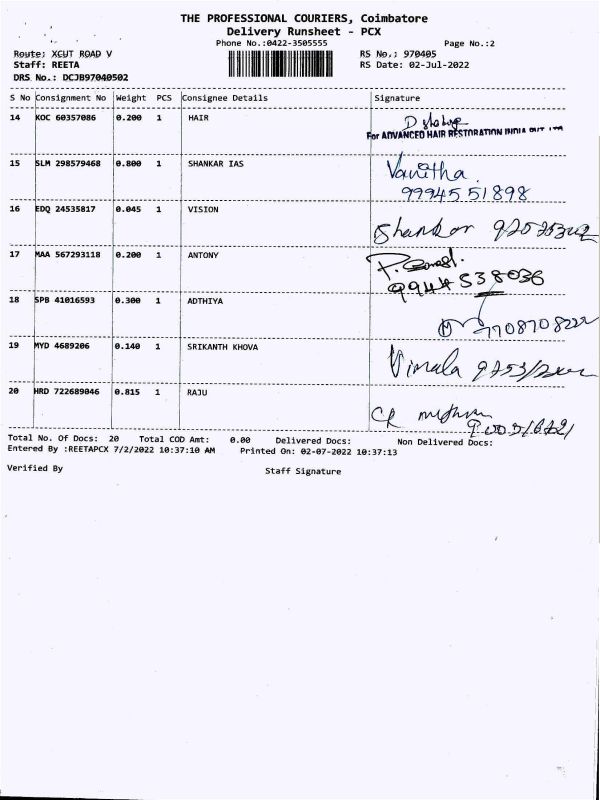 THE PROFESSIONAL COURIERS, Coimbatore
Delivery Runsheet - PCX
Phone No.:0422-3505555 Page No.:2
Route: XCUT ROAD V RS No.: 970405
Staff: REETA RS Date: 02-Jul-2022
DRS No.: DCJB97040502
S No Consignment No Weight PCS Consignee Details Signature
14 KOC 60357086 0.200 1 HAIR
For ADVANCED HAIR RESTORATION INDIA PVT LTD
15 SLM 298579468 0.800 1 SHANKAR IAS Vanitha
99945 51898
16 EDQ 24535817 0.045 1 VISION
Shankar
17 MAA 567293118 0.200 1 ANTONY
99444 538036
18 SPB 41016593 0.300 1 ADTHIYA
7708708222
19 MYD 4689206 0.140 1 SRIKANTH KHOVA
Vimala
20 HRD 722689046 0.815 1 RAJU
Total No. Of Docs: 20 Total COD Amt: 0.00 Delivered Docs: Non Delivered Docs:
Entered By :REETAPCX 7/2/2022 10:37:10 AM Printed On: 02-07-2022 10:37:13
Verified By Staff Signature